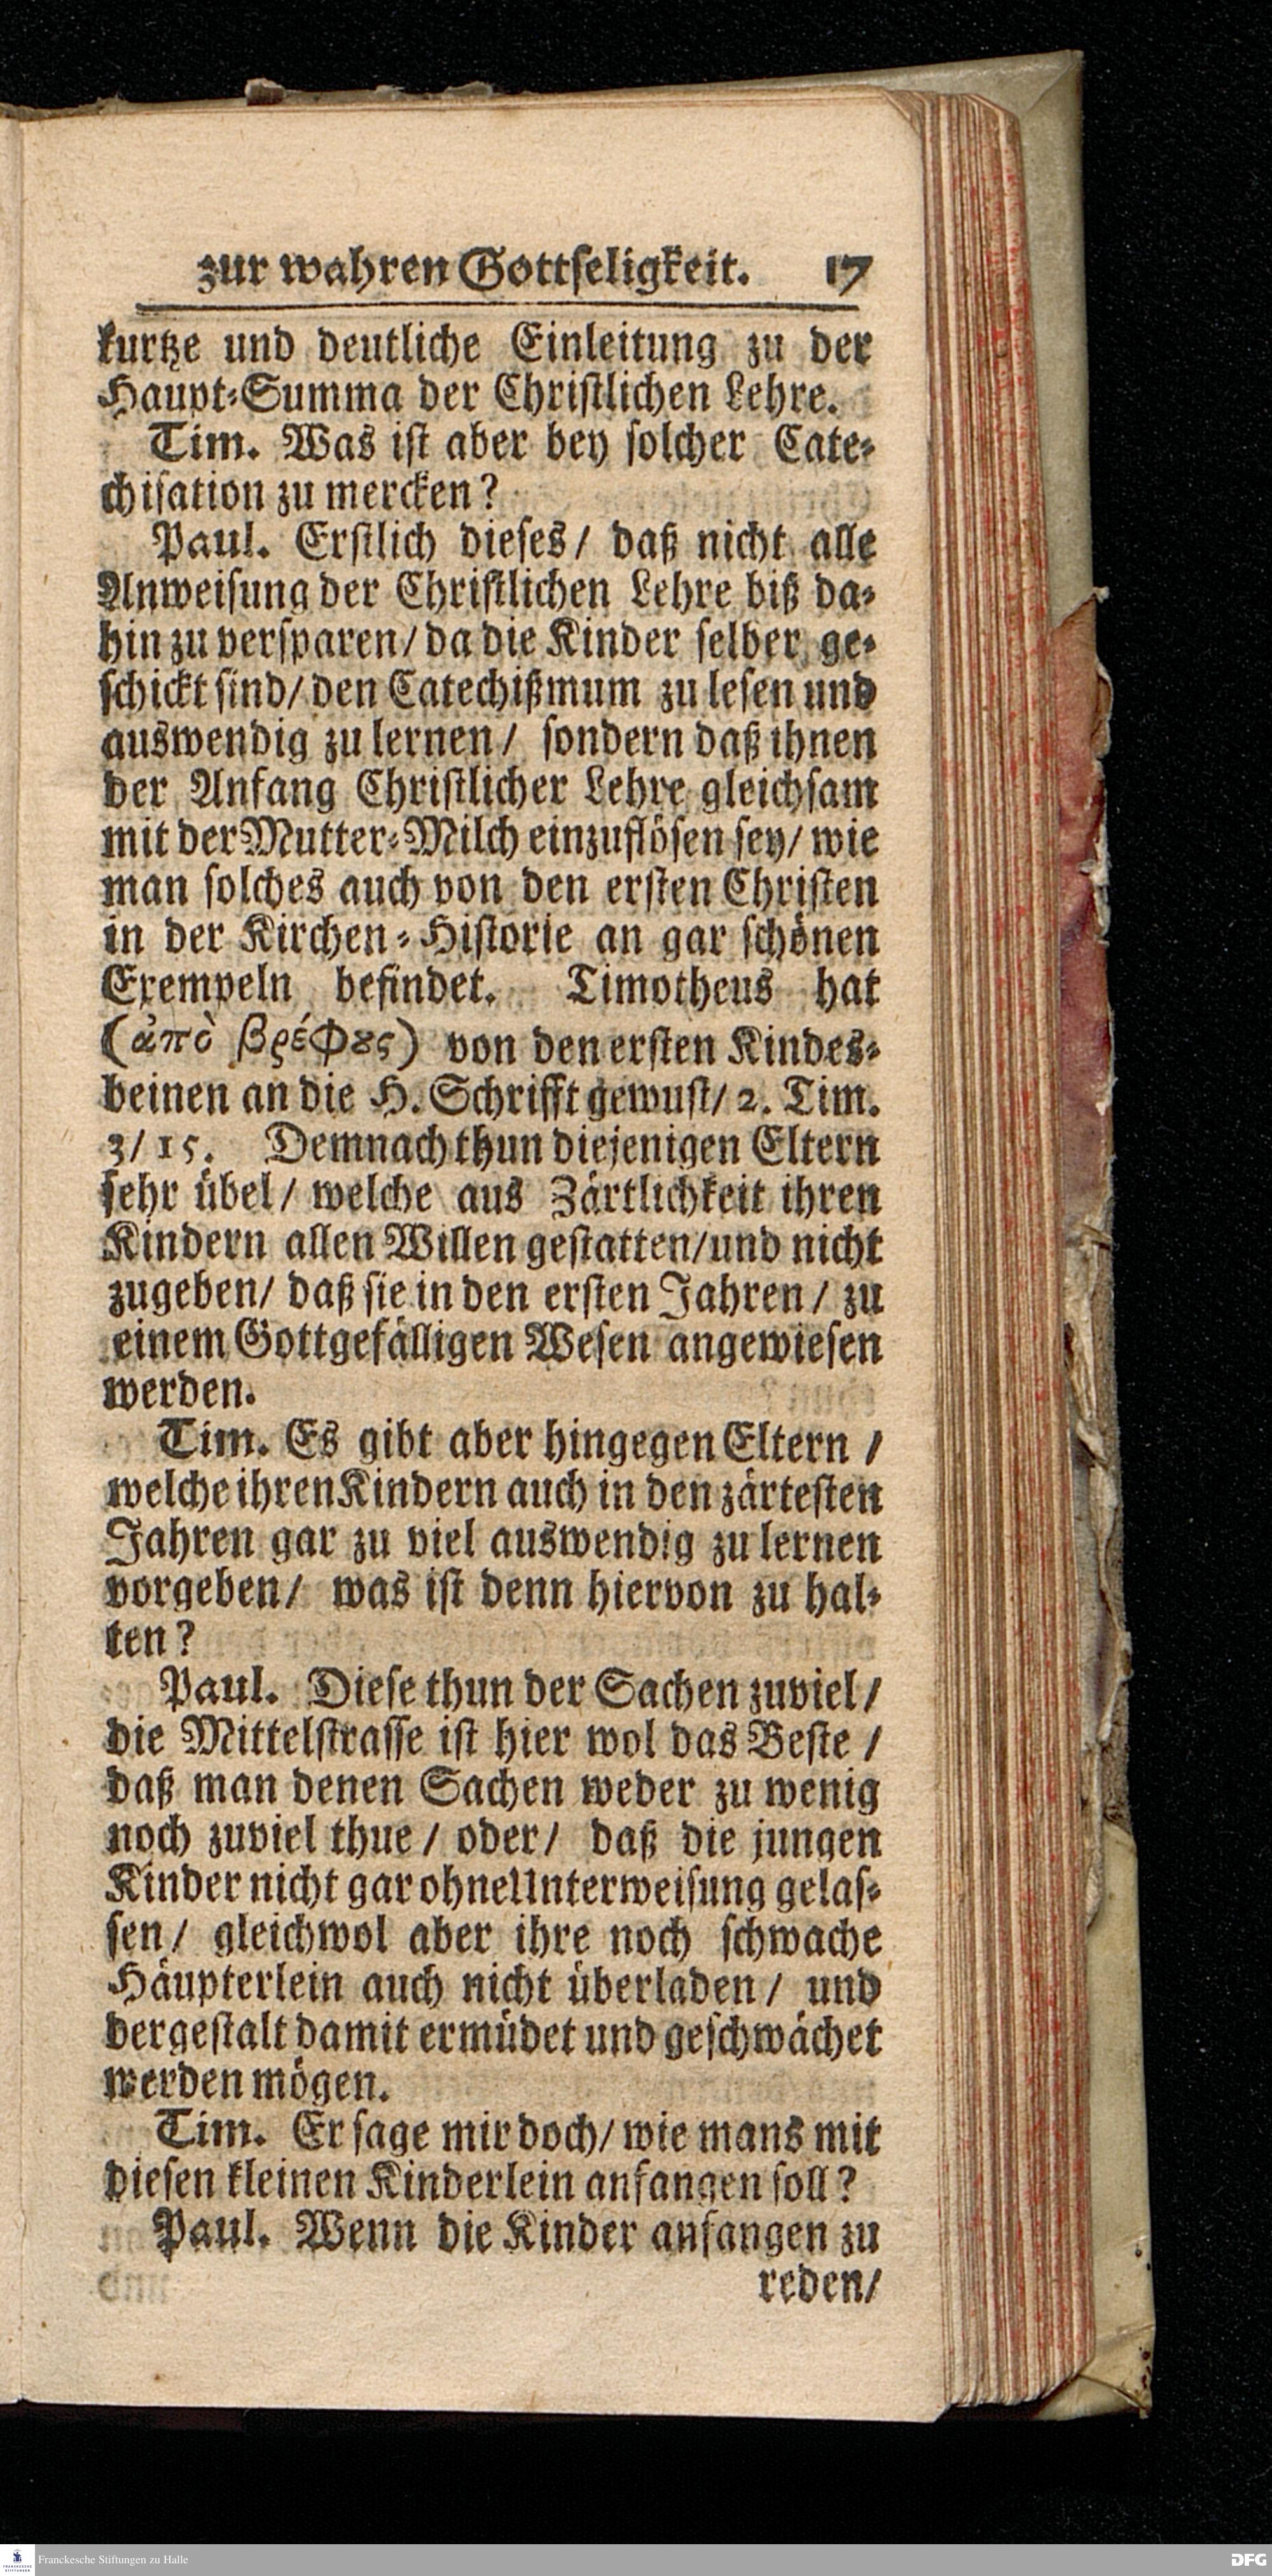 zur wahren Gottseligkeit. 17
kurtze und deutliche Einleitung zu der
Haupt-Summa der Christlichen Lehre.
Tim. Was ist aber bey solcher Cate-
chisation zu mercken?
Paul. Erstlich dieses/ daß nicht alle
Anweisung der Christlichen Lehre biß da-
hin zu versparen/ da die Kinder selber ge-
schickt sind/ den Catechißmum zu lesen und
auswendig zu lernen/ sondern daß ihnen
der Anfang Christlicher Lehre gleichsam
mit der Mutter-Milch einzuflösen sey/ wie
man solches auch von den ersten Christen
in der Kirchen-Historie an gar schönen
Exempeln befindet. Timotheus hat
(ἀπὸ βρέφους) von den ersten Kindes-
beinen an die H. Schrifft gewust/ 2. Tim.
3/ 15. Demnach thun diejenigen Eltern
sehr übel/ welche aus Zärtlichkeit ihren
Kindern allen Willen gestatten/ und nicht
zugeben/ daß sie in den ersten Jahren/ zu
einem Gottgefälligen Wesen angewiesen
werden.
Tim. Es gibt aber hingegen Eltern /
welche ihren Kindern auch in den zärtesten
Jahren gar zu viel auswendig zu lernen
vorgeben/ was ist denn hiervon zu hal-
ten?
Paul. Diese thun der Sachen zuviel/
die Mittelstrasse ist hier wol das Beste /
daß man denen Sachen weder zu wenig
noch zuviel thue / oder/ daß die jungen
Kinder nicht gar ohne Unterweisung gelas-
sen/ gleichwol aber ihre noch schwache
Häupterlein auch nicht überladen/ und
dergestalt damit ermüdet und geschwächet
werden mögen.
Tim. Er sage mir doch/ wie mans mit
diesen kleinen Kinderlein anfangen soll?
Paul. Wenn die Kinder anfangen zu
reden/
Franckesche Stiftungen zu Halle
DFG